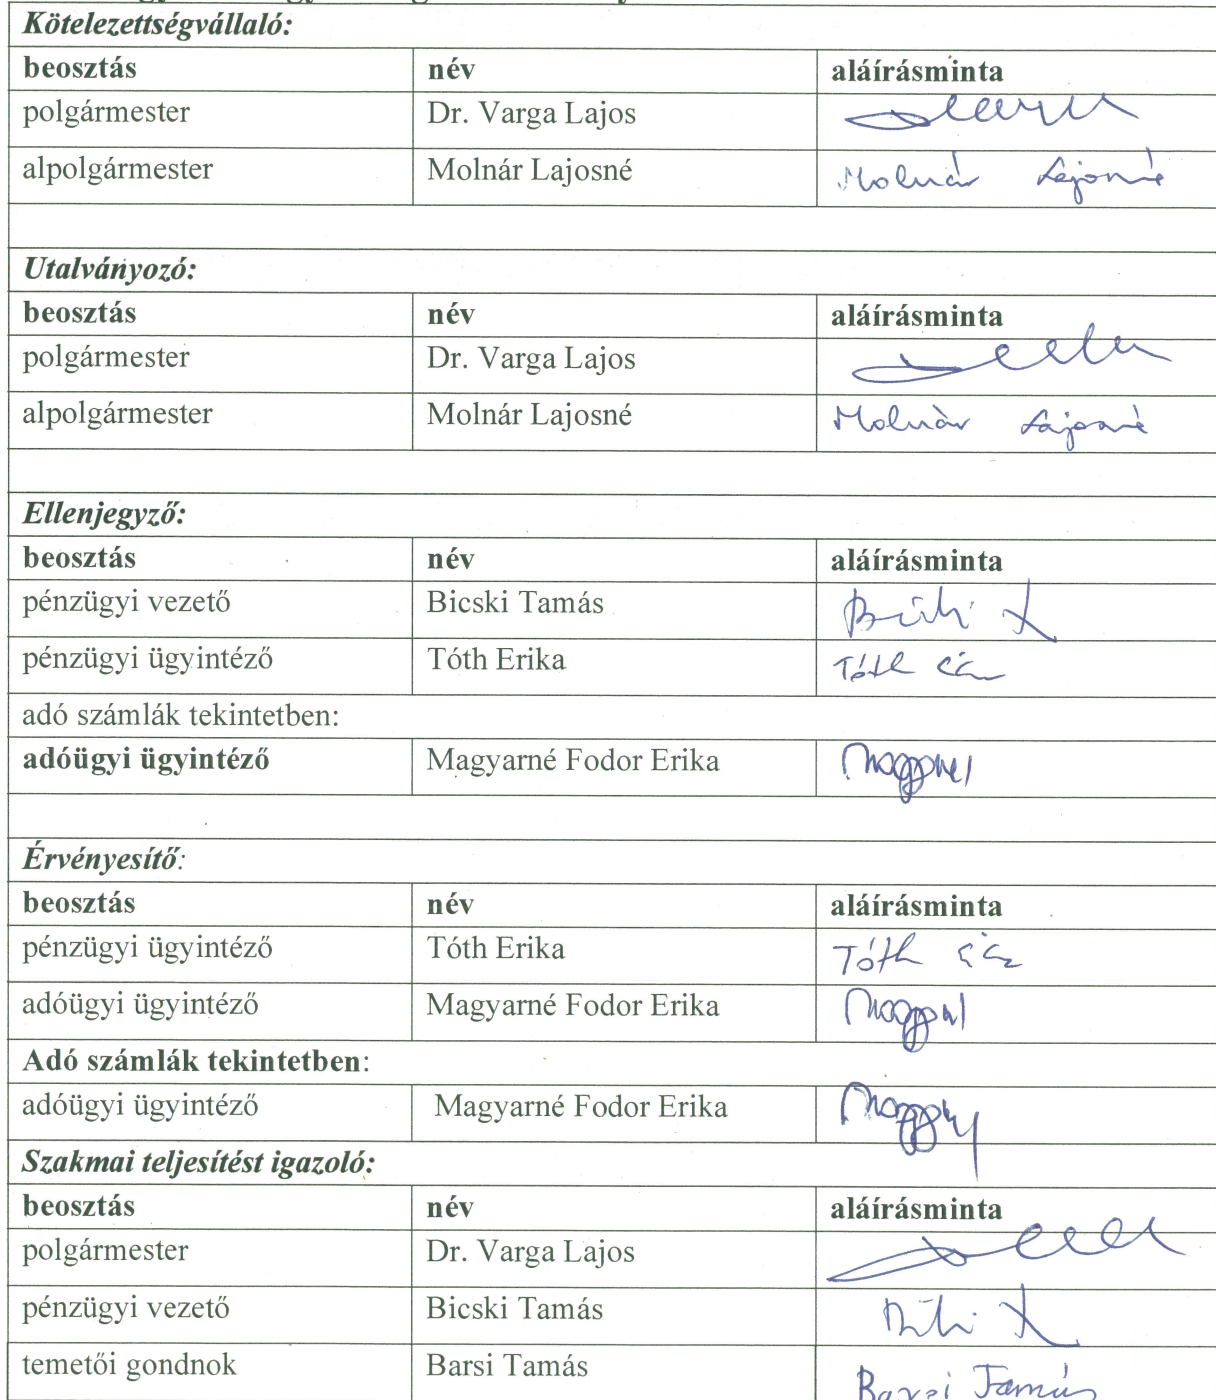 Kötelezettségvállaló:
beosztás név aláírásminta
polgármester Dr. Varga Lajos
alpolgármester Molnár Lajosné Molnár Lajosné
Utalványozó:
beosztás név aláírásminta
polgármester Dr. Varga Lajos
alpolgármester Molnár Lajosné Molnár Lajosné
Ellenjegyző:
beosztás név aláírásminta
pénzügyi vezető Bicski Tamás
pénzügyi ügyintéző Tóth Erika Tóth
adó számlák tekintetben:
adóügyi ügyintéző Magyarné Fodor Erika
Érvényesítő:
beosztás név aláírásminta
pénzügyi ügyintéző Tóth Erika Tóth
adóügyi ügyintéző Magyarné Fodor Erika
Adó számlák tekintetben:
adóügyi ügyintéző Magyarné Fodor Erika
Szakmai teljesítést igazoló:
beosztás név aláírásminta
polgármester Dr. Varga Lajos
pénzügyi vezető Bicski Tamás
temetői gondnok Barsi Tamás Barsi Tamás